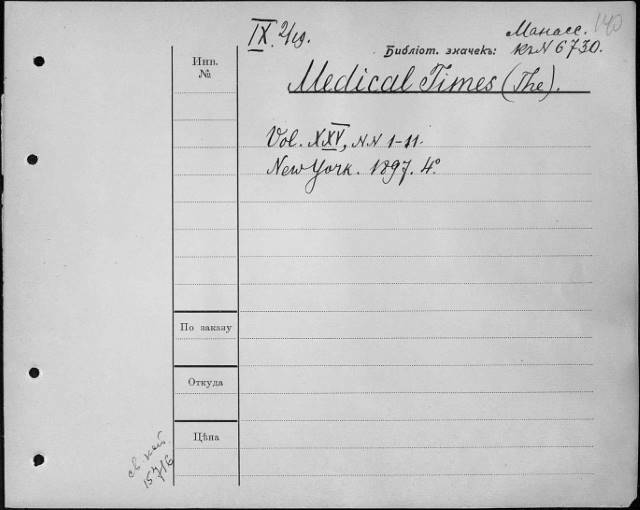 140
IX. 2/19.
Манасс.
Библіот. значекъ: кг N 6730.
Инв.
№
Medical Times (The).
Vol. XXV, NN 1-11.
New York. 1897. 4º
По заказу
Откуда
Цѣна